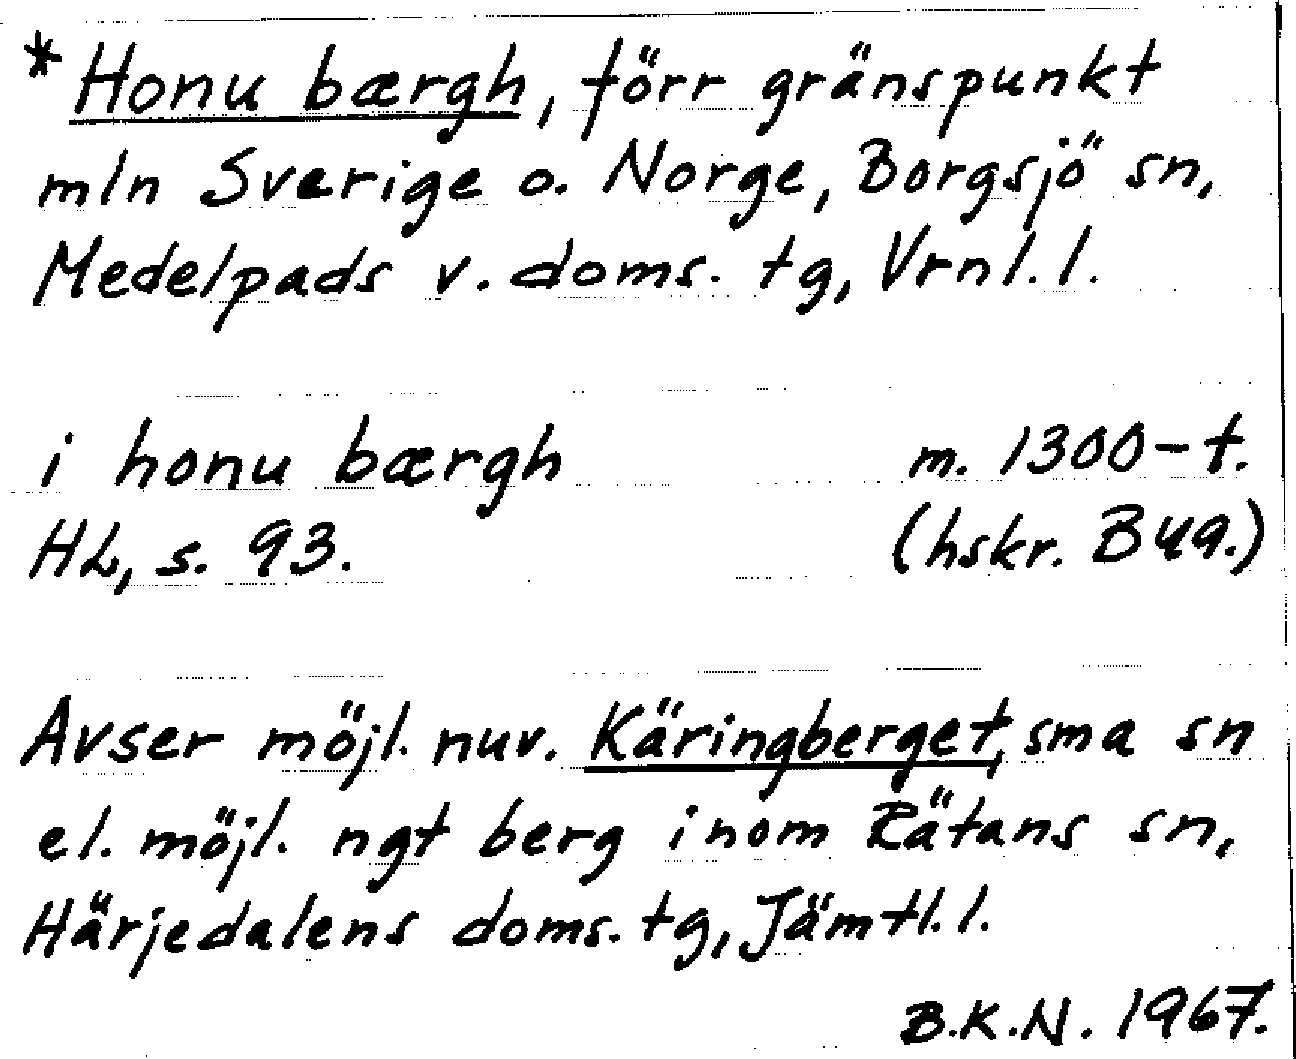 * Honu bærgh, förr gränspunkt
mln Sverige o. Norge, Borgsjö sn,
Medelpads v. doms. tg, Vrnl. l.
i honu bærgh m. 1300-t.
HL, s. 93. (hskr. B 49.)
Avser möjl. nuv. Käringberget, sma sn
el. möjl. ngt berg inom Rätans sn,
Härjedalens doms. tg, Jämtl. l.
B.K.N. 1967.